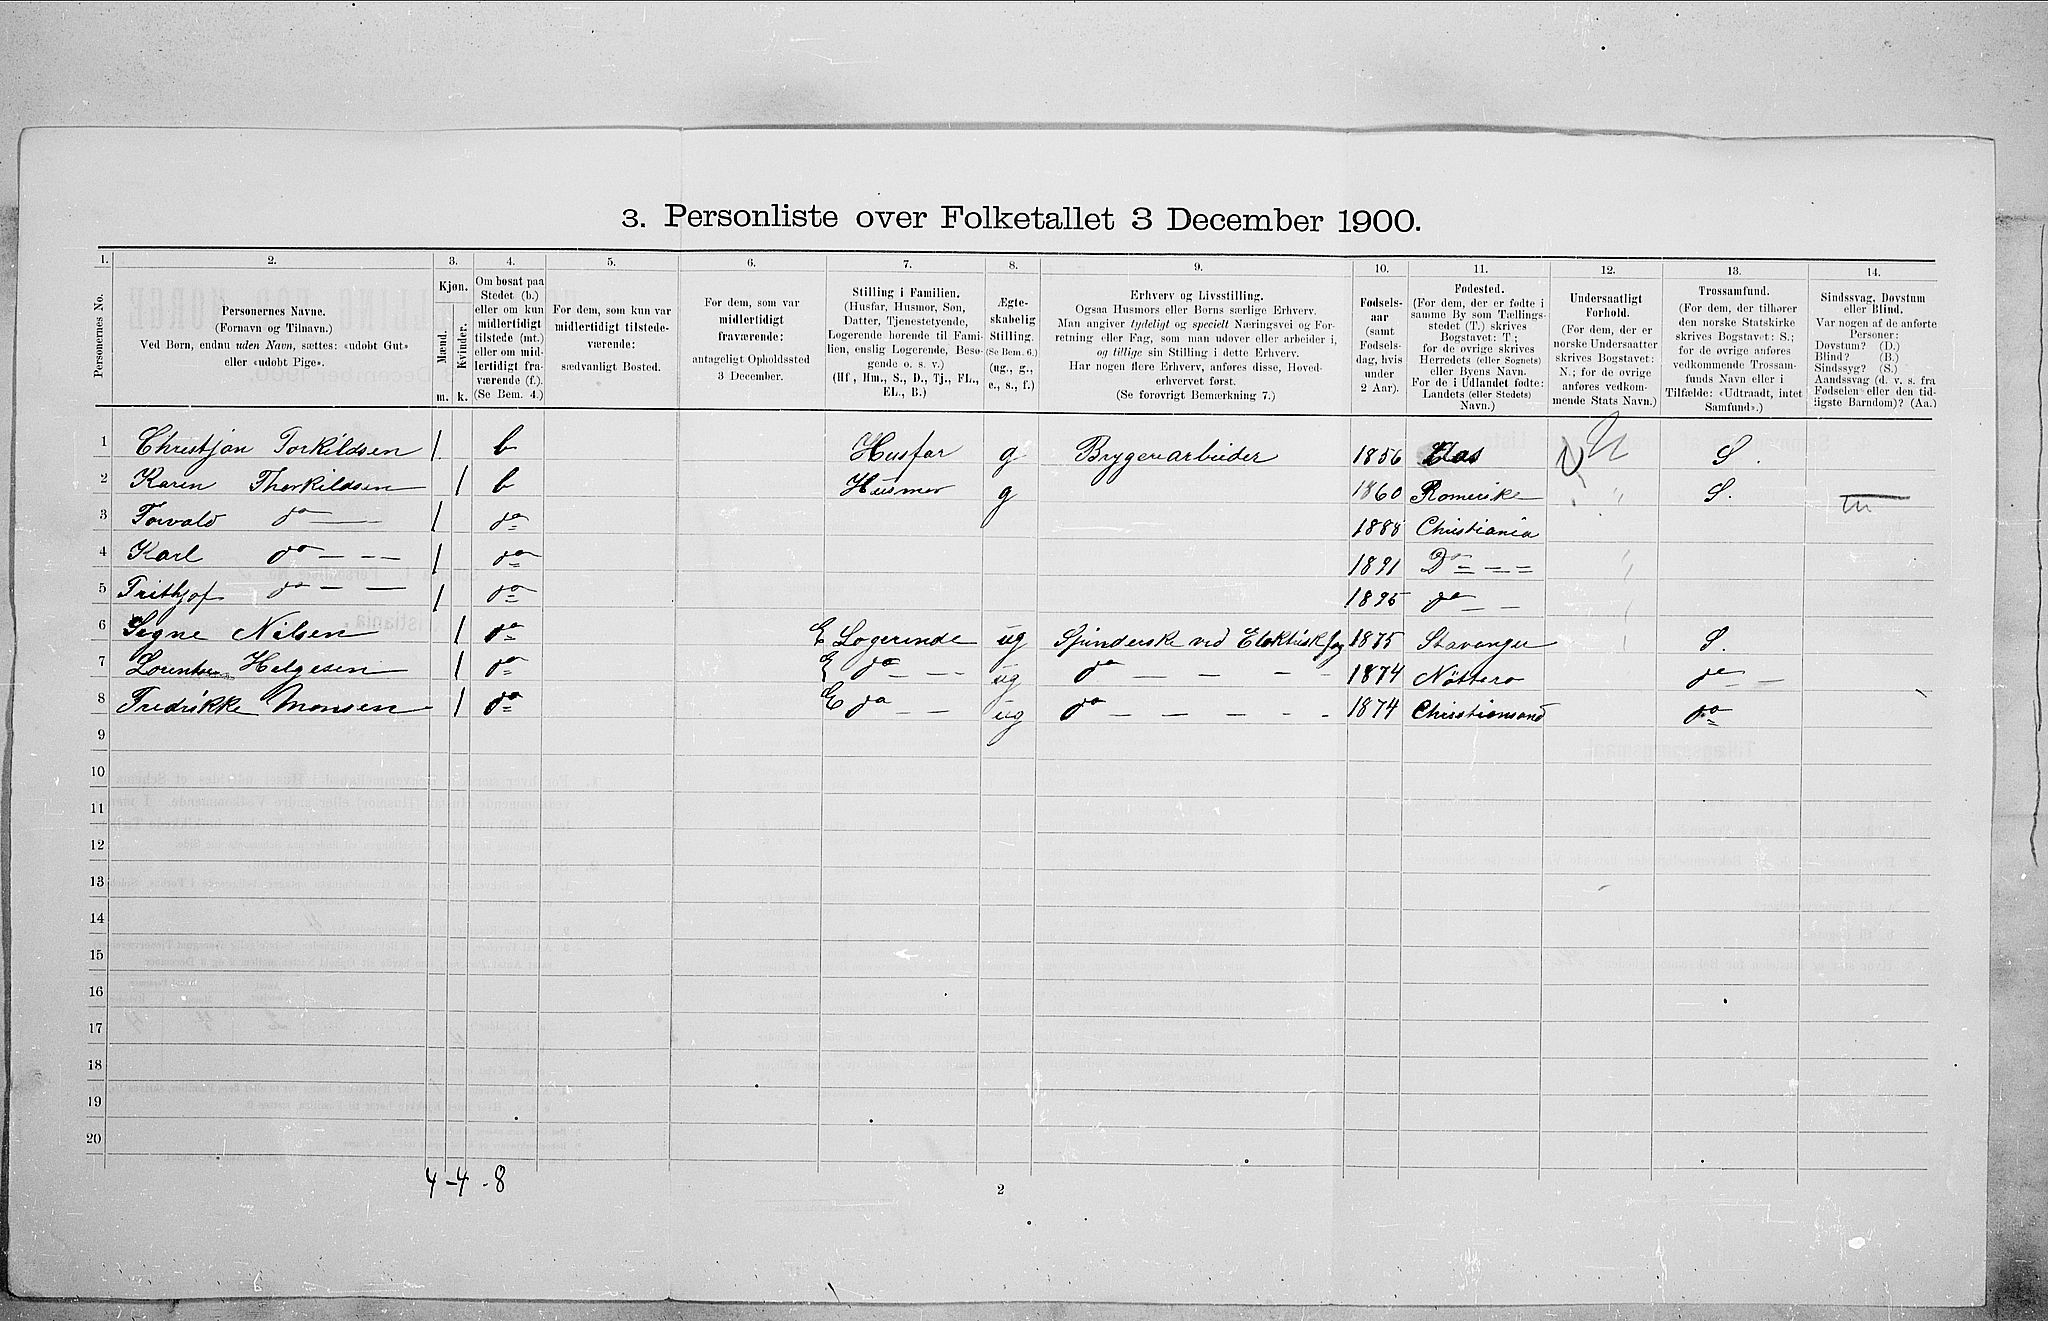 3. Personliste over Folketallet 3 December 1900.
1. 2. 3. 4. 5. 6. 7. 8. 9. 10. 11. 12. 13. 14.
Personernes No.
Personernes Navne.
(Fornavn og Tilnavn.)
Ved Børn, endnu uden Navn, sættes: «udøbt Gut»
eller «udøbt Pige».
Kjøn.
Mænd.
Kvinder.
m. k.
Om bosat paa
Stedet (b.)
eller om kun
midlertidigt
tilstede (mt.)
eller om mid-
lertidigt fra-
værende (f.).
(Se Bem. 4.)
For dem, som kun var
midlertidigt tilstede-
værende:
sædvanligt Bosted.
For dem, som var
midlertidigt
fraværende:
antageligt Opholdssted
3 December.
Stilling i Familien.
(Husfar, Husmor, Søn,
Datter, Tjenestetyende,
Logerende hørende til Fami-
lien, enslig Logerende, Besø-
gende o. s. v.)
(Hf, Hm., S., D., Tj., FL.,
EL., B.)
Ægte-
skabelig
Stilling.
(Se Bem. 6.)
(ug., g.,
e., s., f.)
Erhverv og Livsstilling.
Ogsaa Husmors eller Børns særlige Erhverv.
Man angiver tydeligt og specielt Næringsvei og For-
retning eller Fag, som man udøver eller arbeider i,
og tillige sin Stilling i dette Erhverv.
Har nogen flere Erhverv, anføres disse, Hoved-
erhvervet først.
(Se forøvrigt Bemærkning 7.)
Fødsels-
aar
(samt
Fødsels-
dag, hvis
under
2 Aar).
Fødested.
(For dem, der er fødte i
samme By som Tællings-
stedet (T.) skrives
Bogstavet: T;
for de øvrige skrives
Herredets (eller Sognets)
eller Byens Navn.
For de i Udlandet fødte:
Landets (eller Stedets)
Navn.)
Undersaatligt
Forhold.
(For dem, der er
norske Undersaatter
skrives Bogstavet:
N.; for de øvrige
anføres vedkom-
mende Stats Navn.)
Trossamfund.
(For dem, der tilhører
den norske Statskirke
skrives Bogstavet: S.;
for de øvrige anføres
vedkommende Trossam-
funds Navn eller i
Tilfælde: «Udtraadt, intet
Samfund».)
Sindssvag, Døvstum
eller Blind.
Var nogen af de anførte
Personer:
Døvstum? (D.)
Blind? (B.)
Sindssyg? (S.)
Aandssvag (d. v. s. fra
Fødselen eller den tid-
ligste Barndom)? (Aa.)
1 Christjan Torkildsen 1 b Husfar g Bryggeriarbeider 1856 S.
2 Karen Thorkildsen 1 b Husmor g 1860 Romerike " S.
3 Torvald do 1 do 1888 Christiania
4 Karl do 1 do 1891 Do
5 Frithjof do 1 do 1895 do
6 Signe Nilsen 1 do E Logerende ug Spinderske ved 1875 Stavanger S.
7 Helgesen 1 do E do ug do 1874 Nøttero do
8 Fredrikke Monsen 1 do E do ug do 1874 Christiansand do
9
10
11
12
13
14
15
16
17
18
19
20
4 - 4 - 8
2